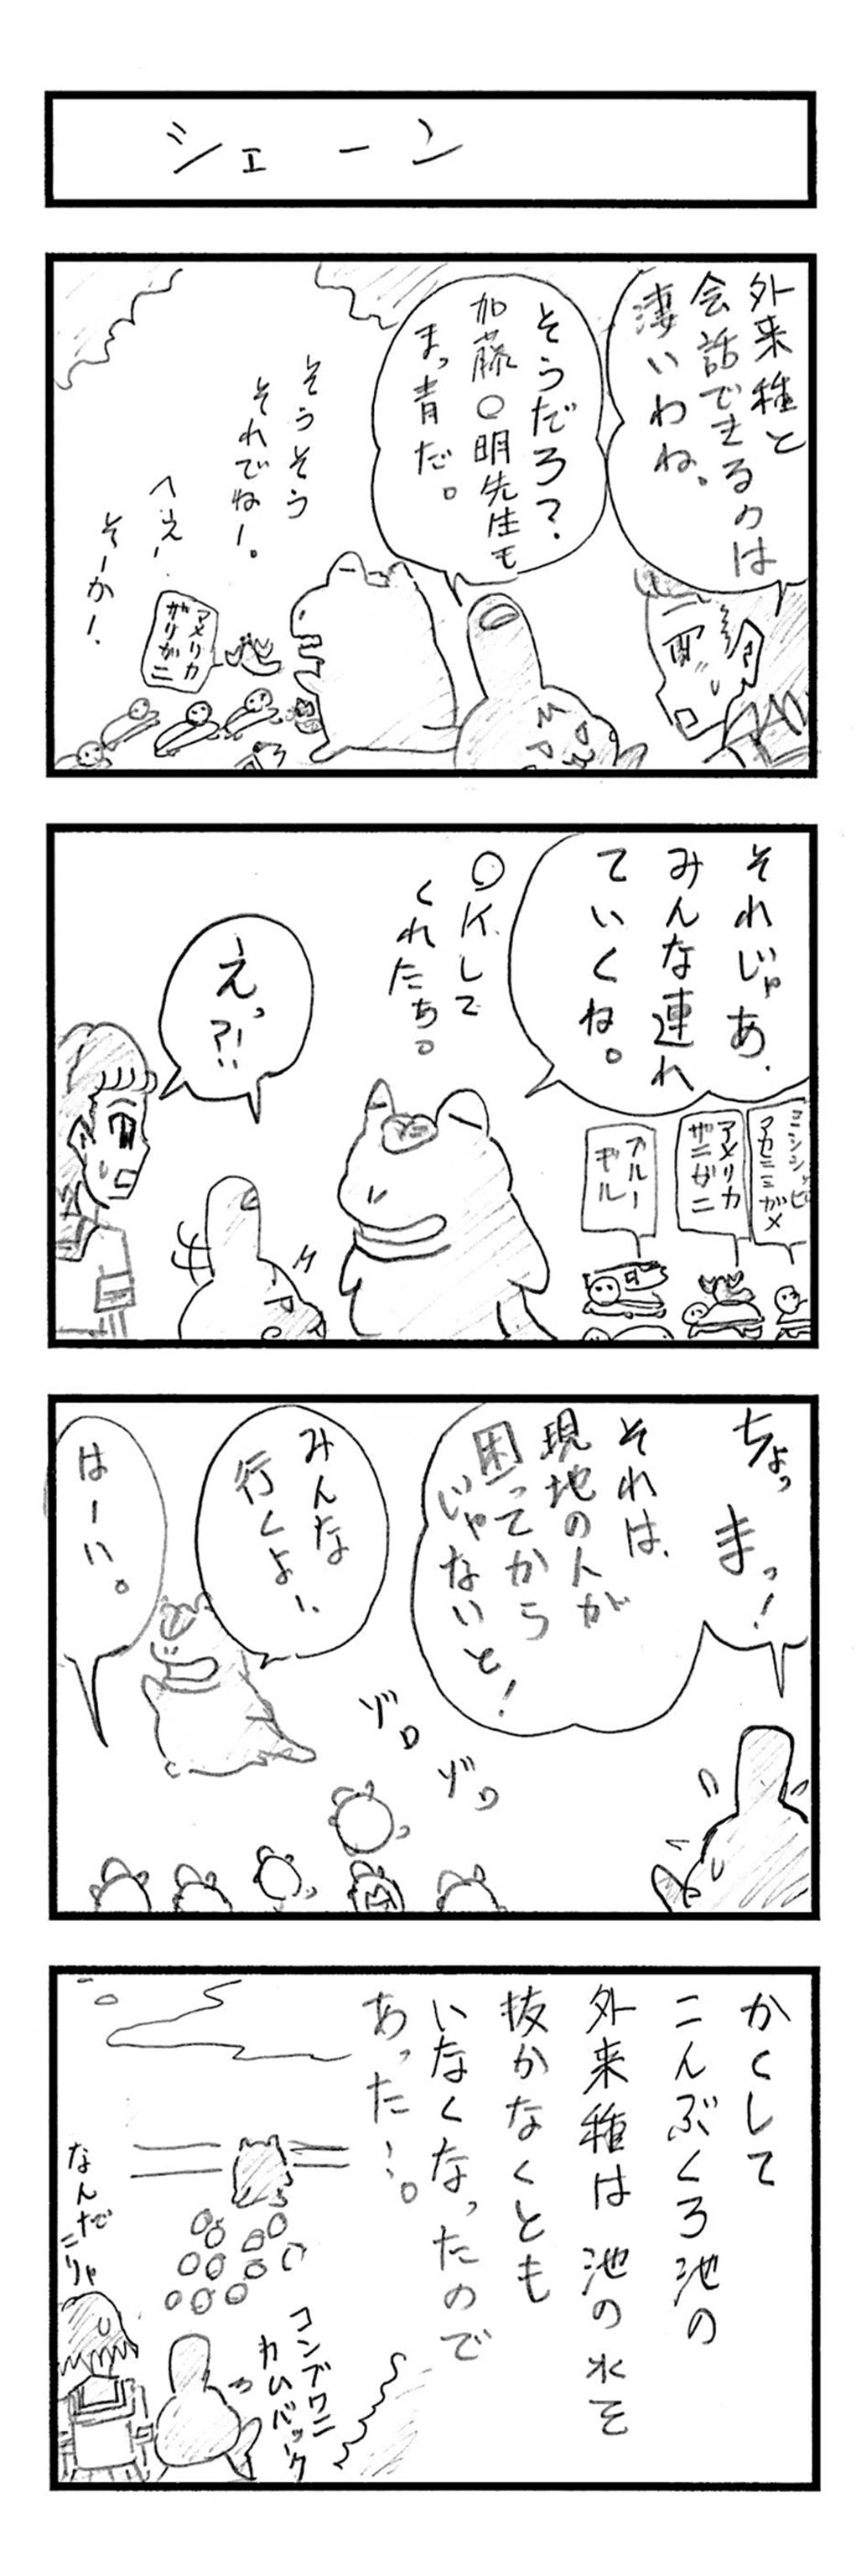 シェーン
外来種と
会話できるのは
凄いわね。
そうだろ?
加藤○明先生も
まっ青だ。
そうそう
それでねー。
へぇー。
そーか!
アメリカ
ザリガニ
それじゃあ、
みんな連れ
ていくね。
OKして
くれたち。
えっ?!!
ミシシッピ
アカミミガメ
アメリカ
ザリガニ
ブルー
ギル
ちょっ
まっ!
それは、
現地の人が
困ってから
じゃないと!
みんな
行くよー、
はーい。
ゾロ
ゾロ
かくして
こんぶくろ池の
外来種は池の水を
抜かなくとも
いなくなったので
あったー。
なんだ
こりゃ
コンブワニ
カムバーック